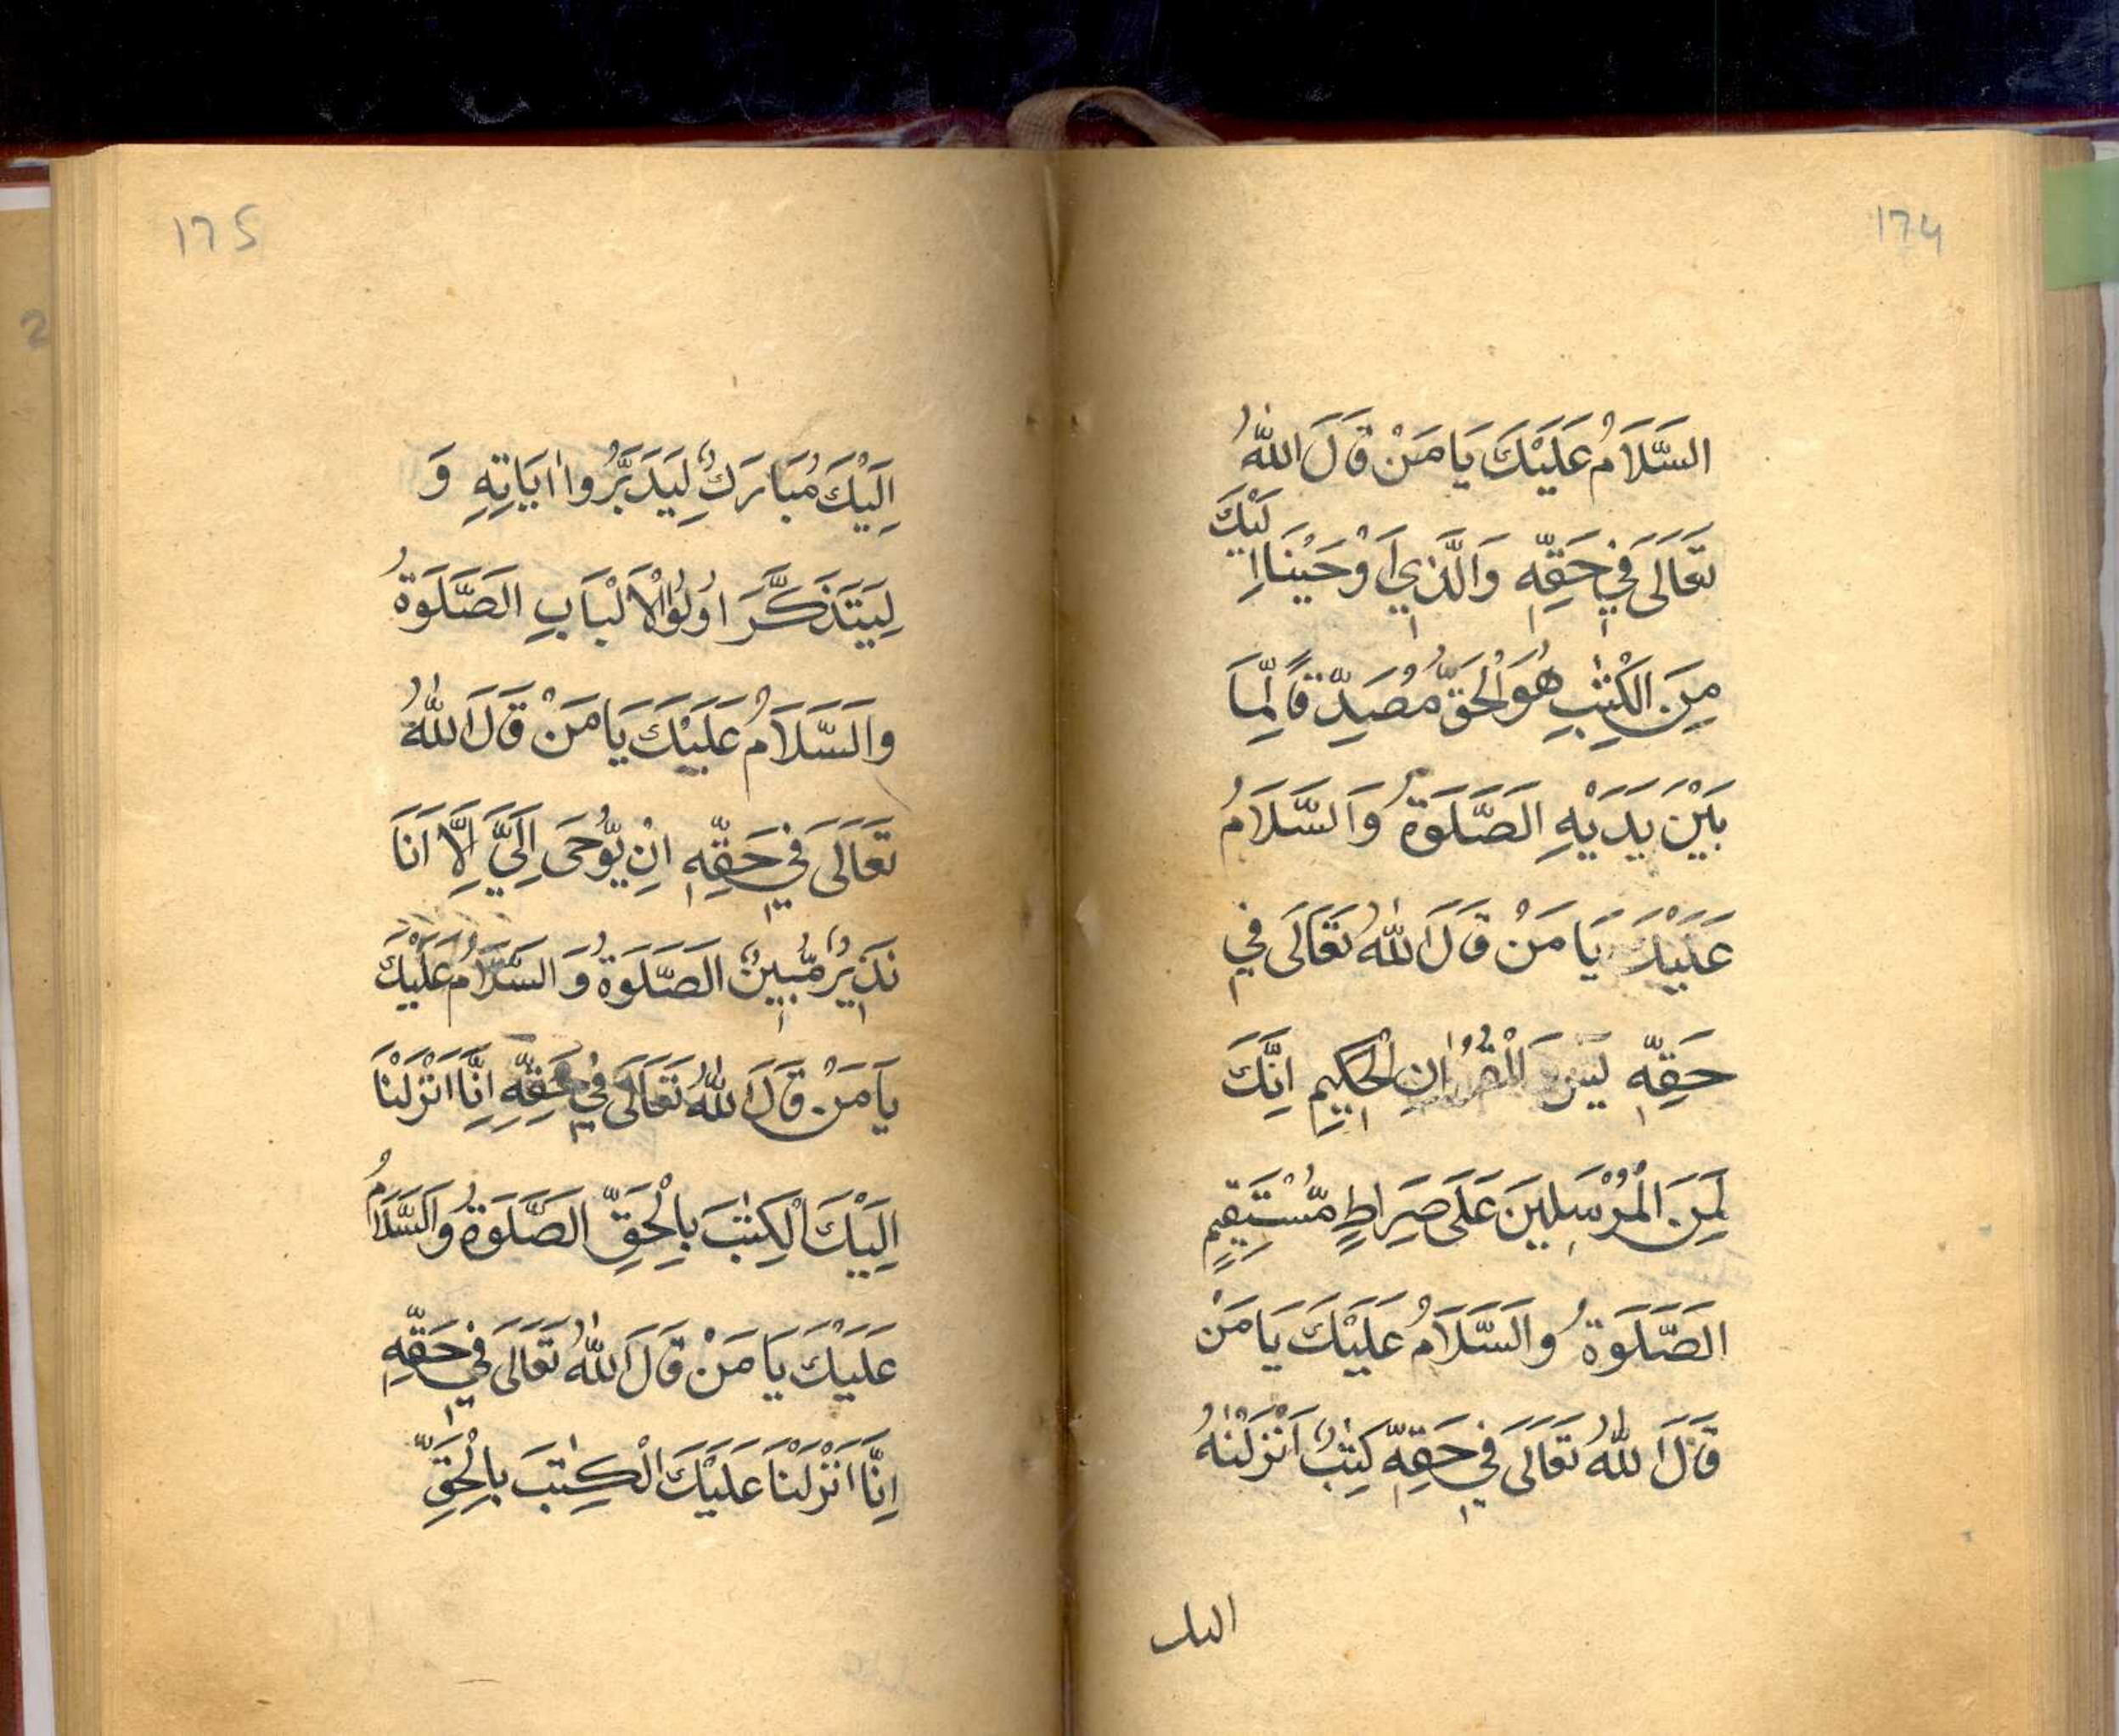 174
السَّلَامُ عَلَيْكَ يَا مَنْ قَالَ اللّٰهُ
تَعَالَى فِي حَقِّهِ وَالَّذِي اَوْحَيْنَا اِلَيْكَ
مِنَ الْكِتٰبِ هُوَ الْحَقُّ مُصَدِّقًا لِّمَا
بَيْنَ يَدَيْهِ الصَّلَوةُ وَالسَّلَامُ
عَلَيْكَ يَا مَنْ قَالَ اللّٰهُ تَعَالَى فِي
حَقِّهِ يٰسٓ وَالْقُرْاٰنِ الْحَكِيمِ اِنَّكَ
لَمِنَ الْمُرْسَلِينَ عَلَى صِرَاطٍ مُّسْتَقِيمٍ
الصَّلَوةُ وَالسَّلَامُ عَلَيْكَ يَا مَنْ
قَالَ اللّٰهُ تَعَالَى فِي حَقِّهِ كِتٰبٌ اَنْزَلْنٰهُ
اليك
175
اِلَيْكَ مُبَارَكٌ لِيَدَبَّرُوا اٰيَاتِهِ وَ
لِيَتَذَكَّرَ اُولُوا الْاَلْبَابِ الصَّلَوةُ
وَالسَّلَامُ عَلَيْكَ يَا مَنْ قَالَ اللّٰهُ
تَعَالَى فِي حَقِّهِ اِنْ يُّوْحَى اِلَيَّ اِلَّا اَنَا
نَذِيرٌ مُّبِينٌ الصَّلَوةُ وَالسَّلَامُ عَلَيْكَ
يَا مَنْ قَالَ اللّٰهُ تَعَالَى فِي حَقِّهِ اِنَّا اَنْزَلْنَا
اِلَيْكَ الْكِتٰبَ بِالْحَقِّ الصَّلَوةُ وَالسَّلَامُ
عَلَيْكَ يَا مَنْ قَالَ اللّٰهُ تَعَالَى فِي حَقِّهِ
اِنَّا اَنْزَلْنَا عَلَيْكَ الْكِتٰبَ بِالْحَقِّ
2